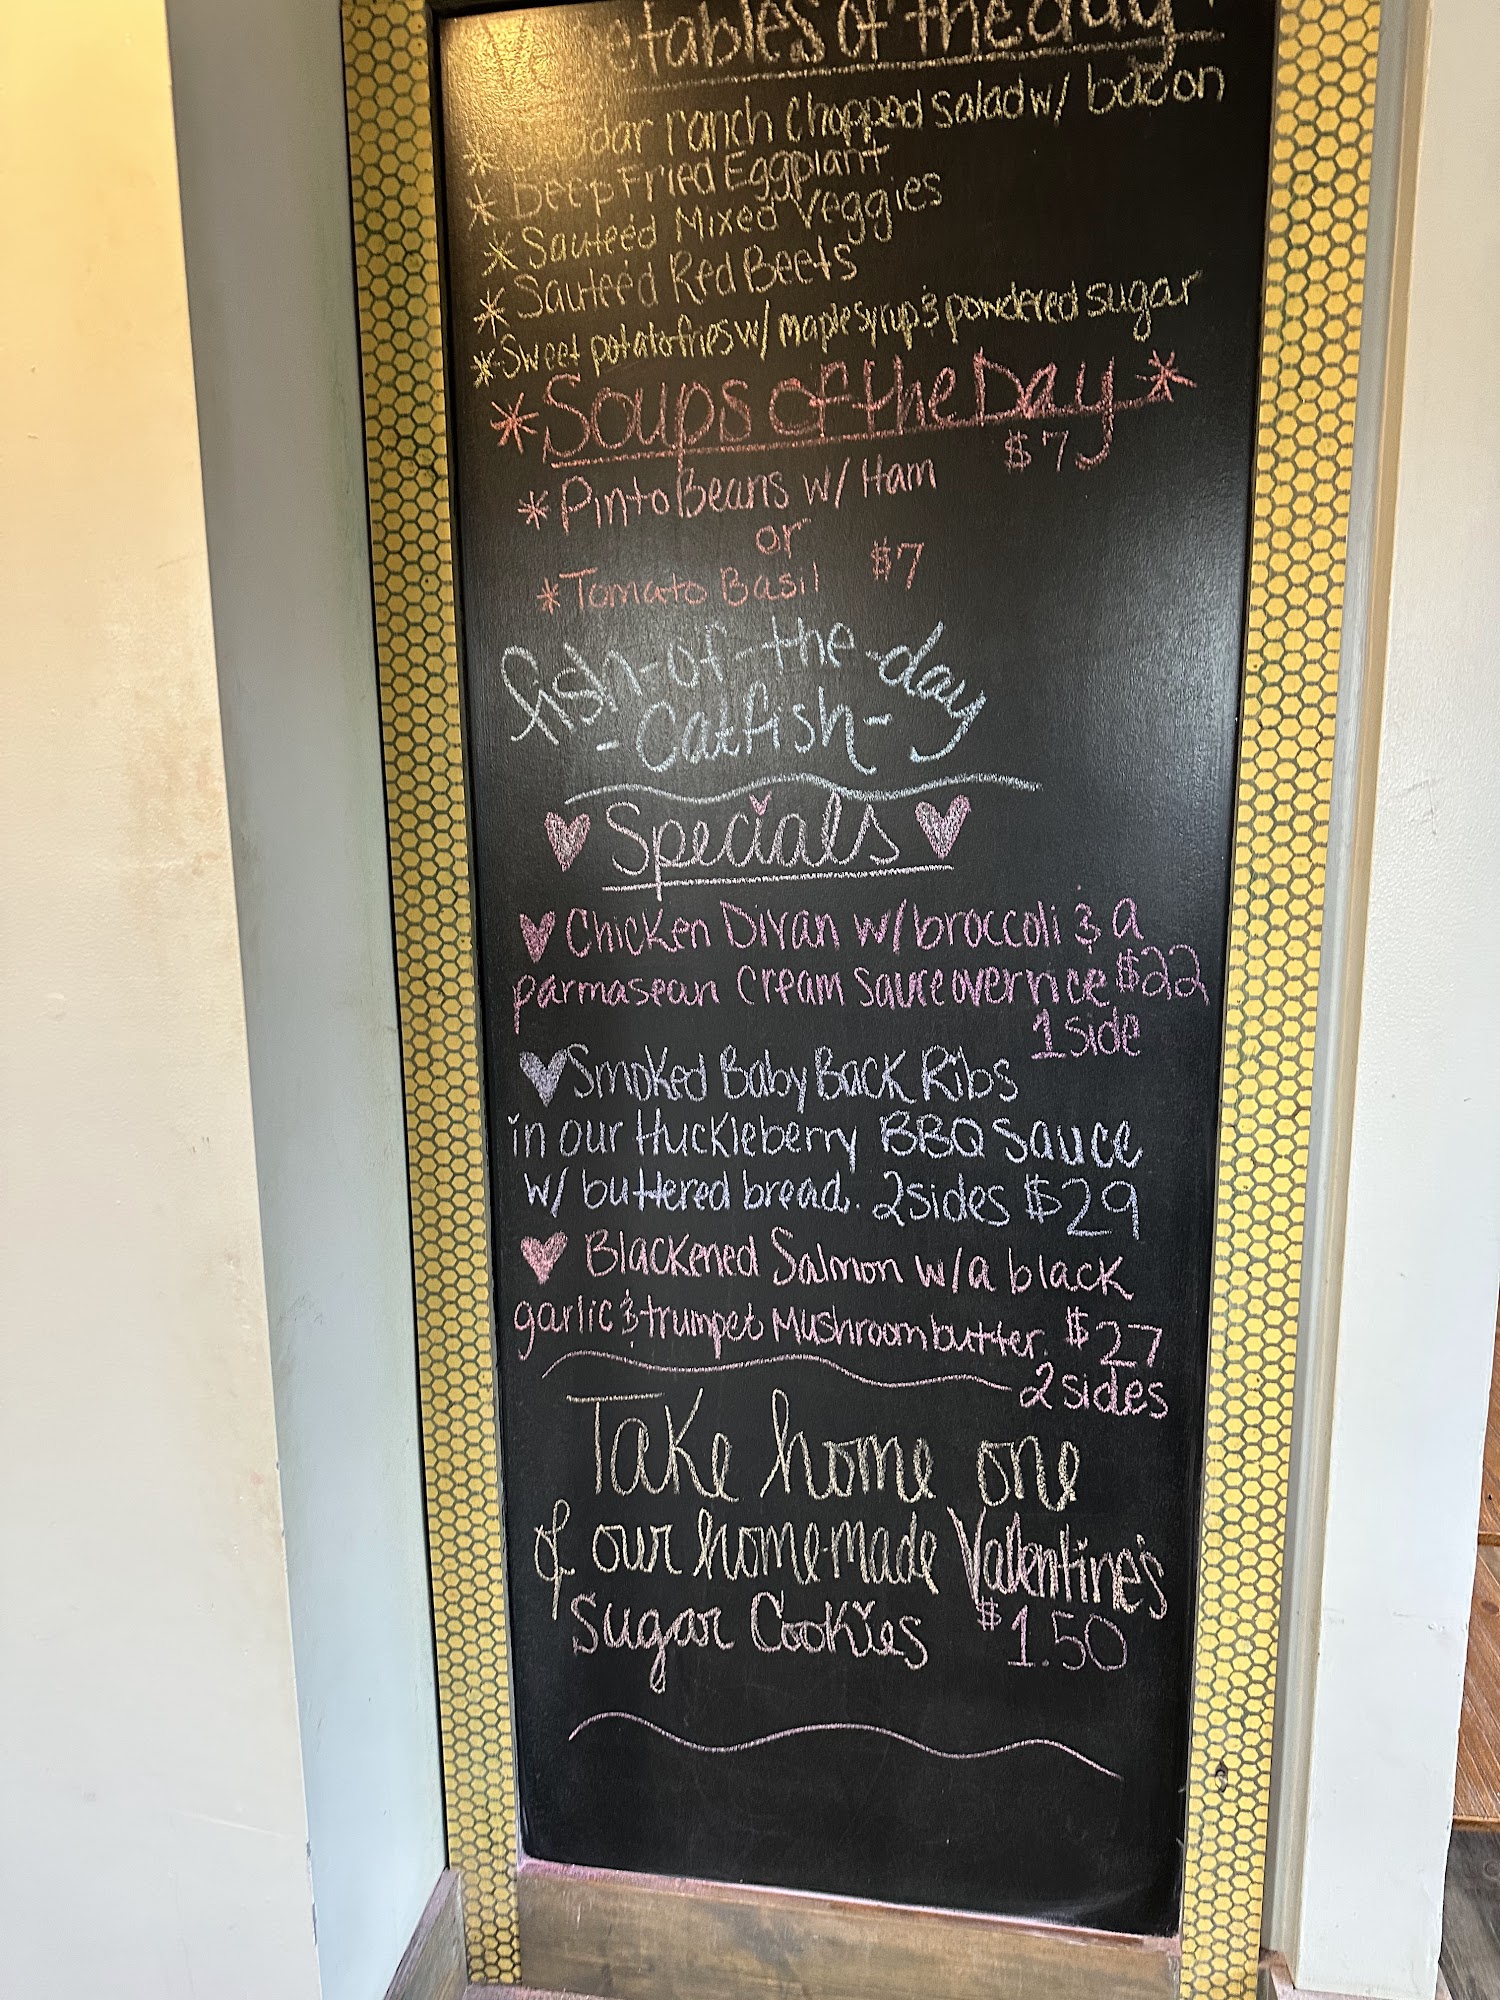 of the day
* ranch chopped salad w/ bacon
* Deep Fried Eggplant
* Sauteé'd Mixed Veggies
* Sauteé'd Red Beets
* Sweet potato fries w/ maple syrup & powdered sugar
* Soups of the Day *
* Pinto Beans w/ Ham $7
or
* Tomato Basil $7
fish-of-the-day
-Catfish-
Specials
Chicken Divan w/ broccoli & a
parmasean cream sauce over rice $22
1 side
Smoked Baby Back Ribs
in our Huckleberry BBQ sauce
w/ buttered bread. 2 sides $29
Blackened Salmon w/ a black
garlic & trumpet mushroom butter. $27
2 sides
Take home one
of our home-made Valentine's
Sugar Cookies $1.50